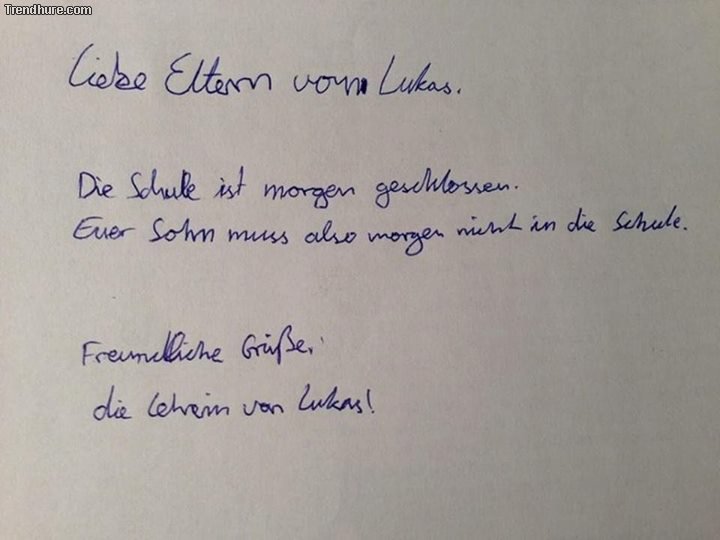 Trendhure.com
Liebe Eltern vom Lukas.
Die Schule ist morgen geschlossen.
Euer Sohn muss also morgen nicht in die Schule.
Freundliche Grüße,
die Lehrein von Lukas!